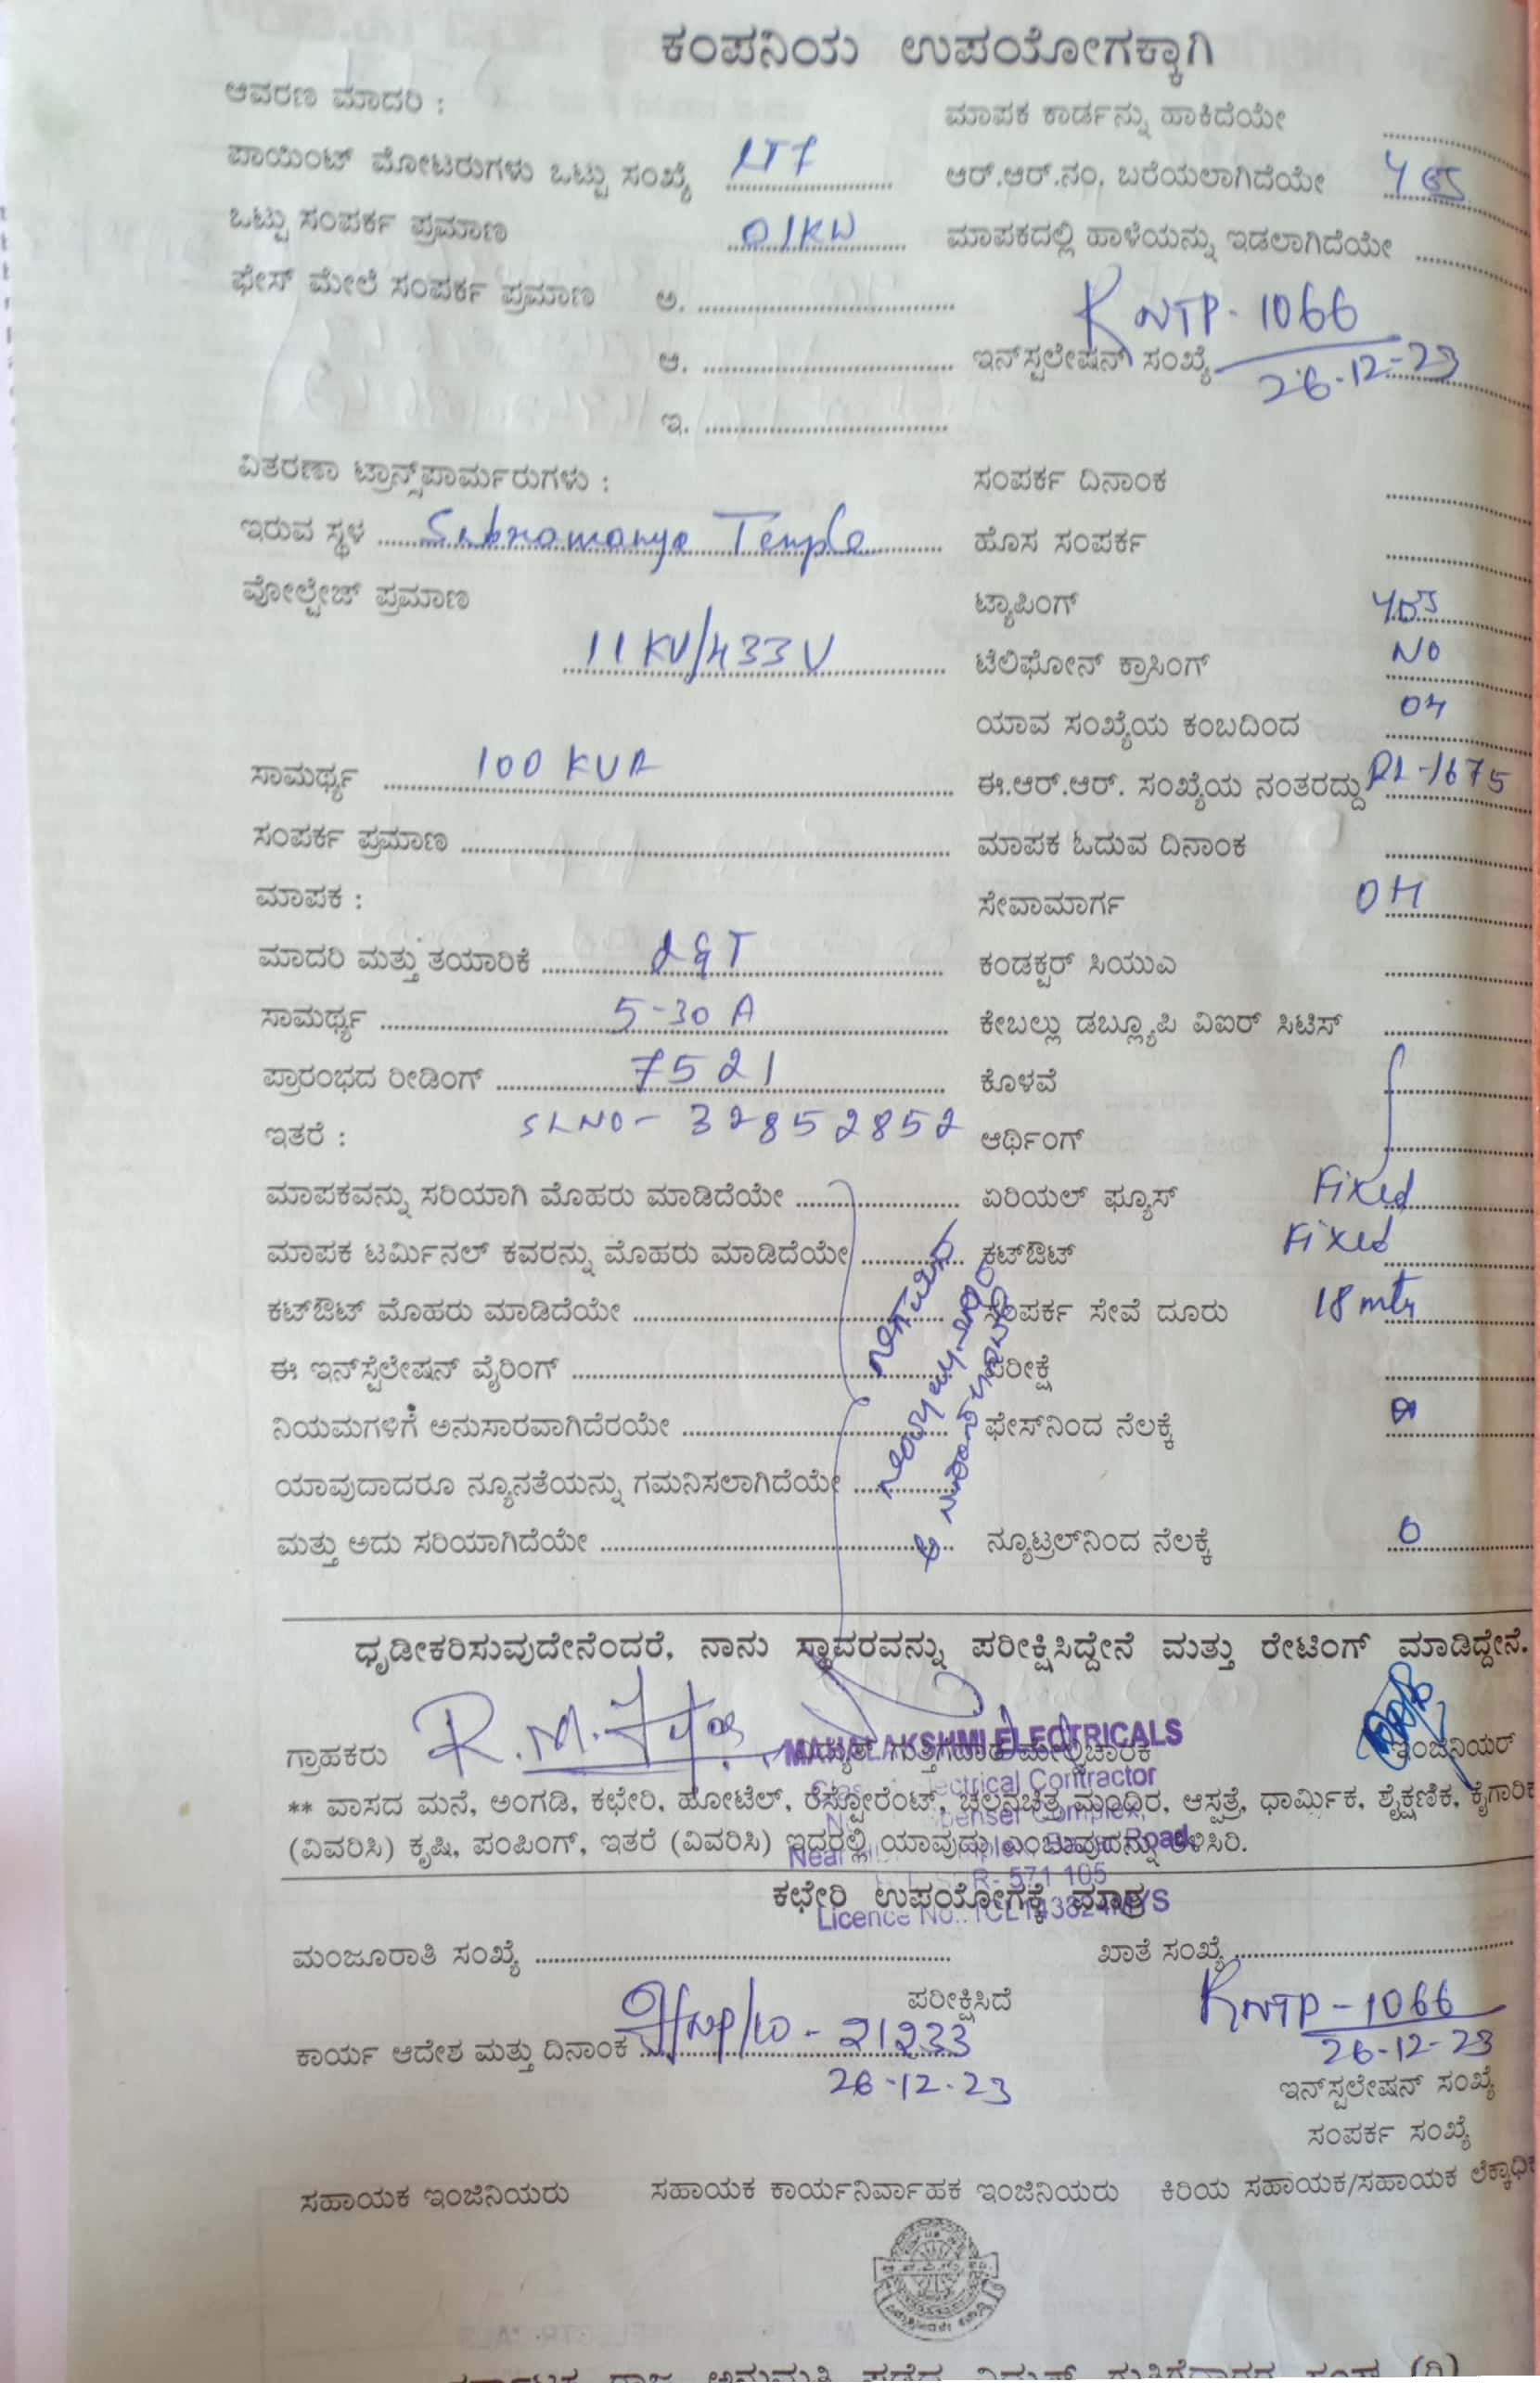 ಕಂಪನಿಯ ಉಪಯೋಗಕ್ಕಾಗಿ
ಆವರಣ ಮಾದರಿ :
ಮಾಪಕ ಕಾರ್ಡನ್ನು ಹಾಕಿದೆಯೇ
ಪಾಯಿಂಟ್ ಮೋಟರುಗಳು ಒಟ್ಟು ಸಂಖ್ಯೆ
ಆರ್.ಆರ್.ನಂ. ಬರೆಯಲಾಗಿದೆಯೇ Yes
ಒಟ್ಟು ಸಂಪರ್ಕ ಪ್ರಮಾಣ 01KW
ಮಾಪಕದಲ್ಲಿ ಹಾಳೆಯನ್ನು ಇಡಲಾಗಿದೆಯೇ
ಫೇಸ್ ಮೇಲೆ ಸಂಪರ್ಕ ಪ್ರಮಾಣ ಅ.
KNTP-1066
ಆ. ಇನ್‌ಸ್ಟಲೇಷನ್ ಸಂಖ್ಯೆ 26-12-23
ಇ.
ವಿತರಣಾ ಟ್ರಾನ್ಸ್‌ಪಾರ್ಮರುಗಳು :
ಸಂಪರ್ಕ ದಿನಾಂಕ
ಇರುವ ಸ್ಥಳ Subramanya Temple
ಹೊಸ ಸಂಪರ್ಕ
ವೋಲ್ಟೇಜ್ ಪ್ರಮಾಣ
ಟ್ಯಾಪಿಂಗ್ Yes
11 KV/433 V
ಟೆಲಿಫೋನ್ ಕ್ರಾಸಿಂಗ್ NO
ಯಾವ ಸಂಖ್ಯೆಯ ಕಂಬದಿಂದ
ಸಾಮರ್ಥ್ಯ 100 KVA
ಈ.ಆರ್.ಆರ್. ಸಂಖ್ಯೆಯ ನಂತರದ್ದು
ಸಂಪರ್ಕ ಪ್ರಮಾಣ
ಮಾಪಕ ಓದುವ ದಿನಾಂಕ
ಮಾಪಕ :
ಸೇವಾಮಾರ್ಗ OH
ಮಾದರಿ ಮತ್ತು ತಯಾರಿಕೆ L&T
ಕಂಡಕ್ಟರ್ ಸಿಯುಎ
ಸಾಮರ್ಥ್ಯ 5-30 A
ಕೇಬಲ್ಲು ಡಬ್ಲ್ಯೂಪಿ ವಿಐರ್ ಸಿಟಿಸ್
ಪ್ರಾರಂಭದ ರೀಡಿಂಗ್ 7521
ಕೊಳವೆ
ಇತರೆ : SLNO- 32852852
ಆರ್ಥಿಂಗ್
ಮಾಪಕವನ್ನು ಸರಿಯಾಗಿ ಮೊಹರು ಮಾಡಿದೆಯೇ
ಏರಿಯಲ್ ಫ್ಯೂಸ್ Fixed
ಮಾಪಕ ಟರ್ಮಿನಲ್ ಕವರನ್ನು ಮೊಹರು ಮಾಡಿದೆಯೇ
ಕಟ್‌ಔಟ್ Fixed
ಕಟ್‌ಔಟ್ ಮೊಹರು ಮಾಡಿದೆಯೇ
ಸಂಪರ್ಕ ಸೇವೆ ದೂರು 18 mtr
ಈ ಇನ್‌ಸ್ಟೆಲೇಷನ್ ವೈರಿಂಗ್
ಪರೀಕ್ಷೆ
ನಿಯಮಗಳಿಗೆ ಅನುಸಾರವಾಗಿದೆರಯೇ
ಫೇಸ್‌ನಿಂದ ನೆಲಕ್ಕೆ
ಯಾವುದಾದರೂ ನ್ಯೂನತೆಯನ್ನು ಗಮನಿಸಲಾಗಿದೆಯೇ
ಮತ್ತು ಅದು ಸರಿಯಾಗಿದೆಯೇ
ನ್ಯೂಟ್ರಲ್‌ನಿಂದ ನೆಲಕ್ಕೆ 0
ಧೃಡೀಕರಿಸುವುದೇನೆಂದರೆ, ನಾನು ಸ್ಥಾವರವನ್ನು ಪರೀಕ್ಷಿಸಿದ್ದೇನೆ ಮತ್ತು ರೇಟಿಂಗ್ ಮಾಡಿದ್ದೇನೆ.
MAHALAKSHMI ELECTRICALS
ಗ್ರಾಹಕರು ವಿದ್ಯುತ್ ಗುತ್ತಿಗೆದಾರ ಮೇಲ್ವಿಚಾರಕ ಇಂಜಿನಿಯರ್
Electrical Contractor
** ವಾಸದ ಮನೆ, ಅಂಗಡಿ, ಕಛೇರಿ, ಹೋಟೆಲ್, ರೆಸ್ಟೋರೆಂಟ್, ಚಲನಚಿತ್ರ ಮಂದಿರ, ಆಸ್ಪತ್ರೆ, ಧಾರ್ಮಿಕ, ಶೈಕ್ಷಣಿಕ, ಕೈಗಾರಿಕ
(ವಿವರಿಸಿ) ಕೃಷಿ, ಪಂಪಿಂಗ್, ಇತರೆ (ವಿವರಿಸಿ) ಇದರಲ್ಲಿ ಯಾವುದು ಎಂಬುವುದನ್ನು ತಿಳಿಸಿರಿ.
Near Road,
R- 571 105
ಕಛೇರಿ ಉಪಯೋಗಕ್ಕೆ ಮಾತ್ರ
Licence No.
ಮಂಜೂರಾತಿ ಸಂಖ್ಯೆ
ಖಾತೆ ಸಂಖ್ಯೆ
ಪರೀಕ್ಷಿಸಿದೆ
KNTP-1066
ಕಾರ್ಯ ಆದೇಶ ಮತ್ತು ದಿನಾಂಕ 21233
26-12-23
26-12-23
ಇನ್‌ಸ್ಟಲೇಷನ್ ಸಂಖ್ಯೆ
ಸಂಪರ್ಕ ಸಂಖ್ಯೆ
ಸಹಾಯಕ ಇಂಜಿನಿಯರು ಸಹಾಯಕ ಕಾರ್ಯನಿರ್ವಾಹಕ ಇಂಜಿನಿಯರು ಕಿರಿಯ ಸಹಾಯಕ/ಸಹಾಯಕ